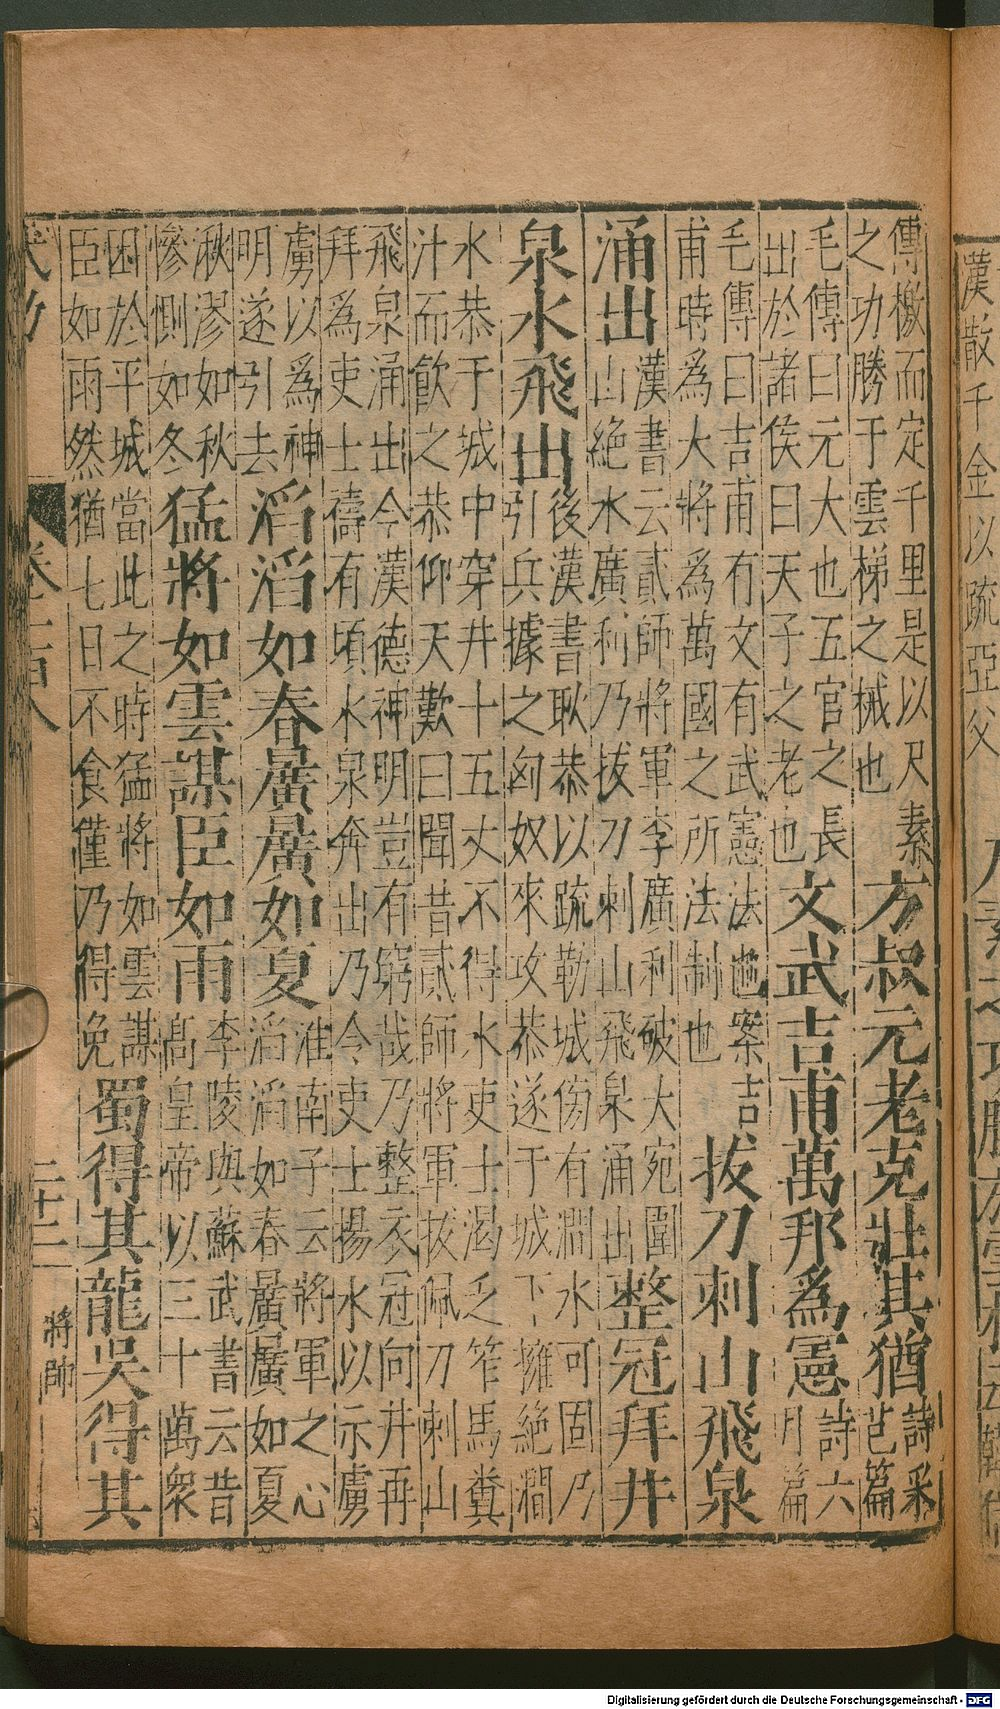 漢散千金以疏亞父
傳檄而定千里是以尺素
之功勝于雲梯之械也
方叔元老克壯其猶
詩采
芑篇
毛傳曰元大也五官之長
出於諸侯曰天子之老也
文武吉甫萬邦為憲
詩六
月篇
毛傳曰吉甫有文有武憲法也案吉
甫時為大將為萬國之所法制也
拔刀刺山飛泉
涌出
漢書云貳師將軍李廣利破大宛圍
山絶水廣利乃拔刀刺山飛泉涌出
整冠拜井
泉水飛出
後漢書耿恭以疏勒城傍有澗水可固乃
引兵據之匈奴來攻恭遂于城下擁絶澗
水恭于城中穿井十五丈不得水吏士渴乏笮馬糞
汁而飲之恭仰天歎曰聞昔貳師將軍拔佩刀刺山
飛泉涌出今漢德神明豈有窮哉乃整衣冠向井再
拜為吏士禱有頃水泉奔出乃令吏士揚水以示虜
虜以為神
明遂引去
滔滔如春廣廣如夏
淮南子云將軍之心
滔滔如春廣廣如夏
湫漻如秋
慘惻如冬
猛將如雲謀臣如雨
李陵與蘇武書云昔
髙皇帝以三十萬衆
困於平城當此之時猛將如雲謀
臣如雨然猶七日不食僅乃得免
蜀得其龍吳得其
二十二
將帥
Digitalisierung gefördert durch die Deutsche Forschungsgemeinschaft - DFG